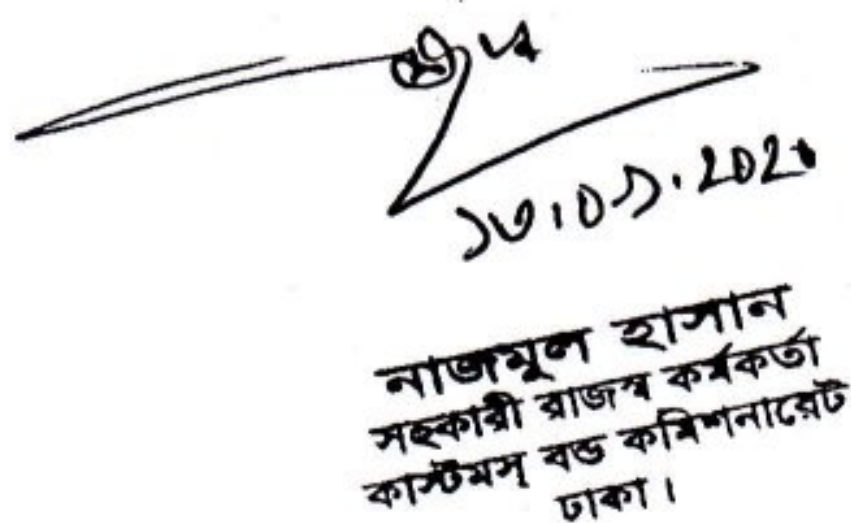 ১৩.০১.২০২১
নাজমুল হাসান
সহকারী রাজস্ব কর্মকর্তা
কাস্টমস্ বন্ড কমিশনারেট
ঢাকা।